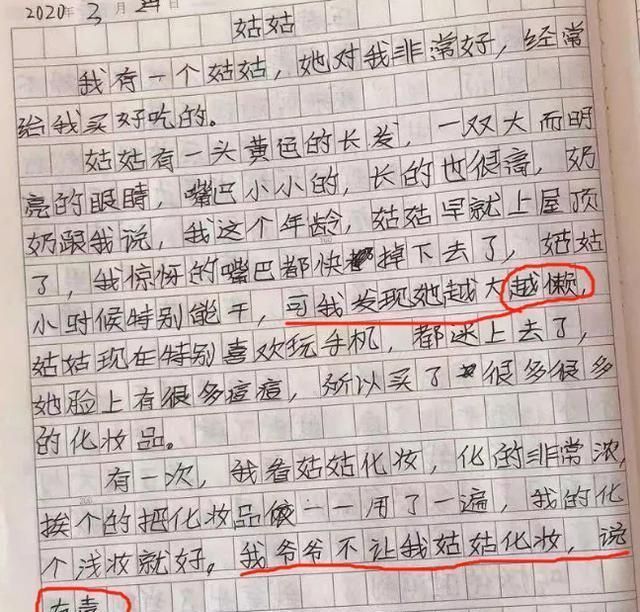 2020年3月24日
姑姑
我有一个姑姑，她对我非常好，经常
给我买好吃的。
姑姑有一头黄色的长发，一双大而明
亮的眼睛，嘴巴小小的，长的也很高，奶
奶跟我说，我这个年龄，姑姑早就上屋顶
了，我惊讶的嘴巴都快掉下去了，姑姑
小时候特别能干，可我发现她越大越懒，
姑姑现在特别喜欢玩手机，都迷上去了，
她脸上有很多痘痘，所以买了很多很多
的化妆品。
有一次，我看姑姑化妆，化的非常浓，
挨个的把化妆品一一用了一遍，我的化
个浅妆就好。我爷爷不让我姑姑化妆，说
有毒